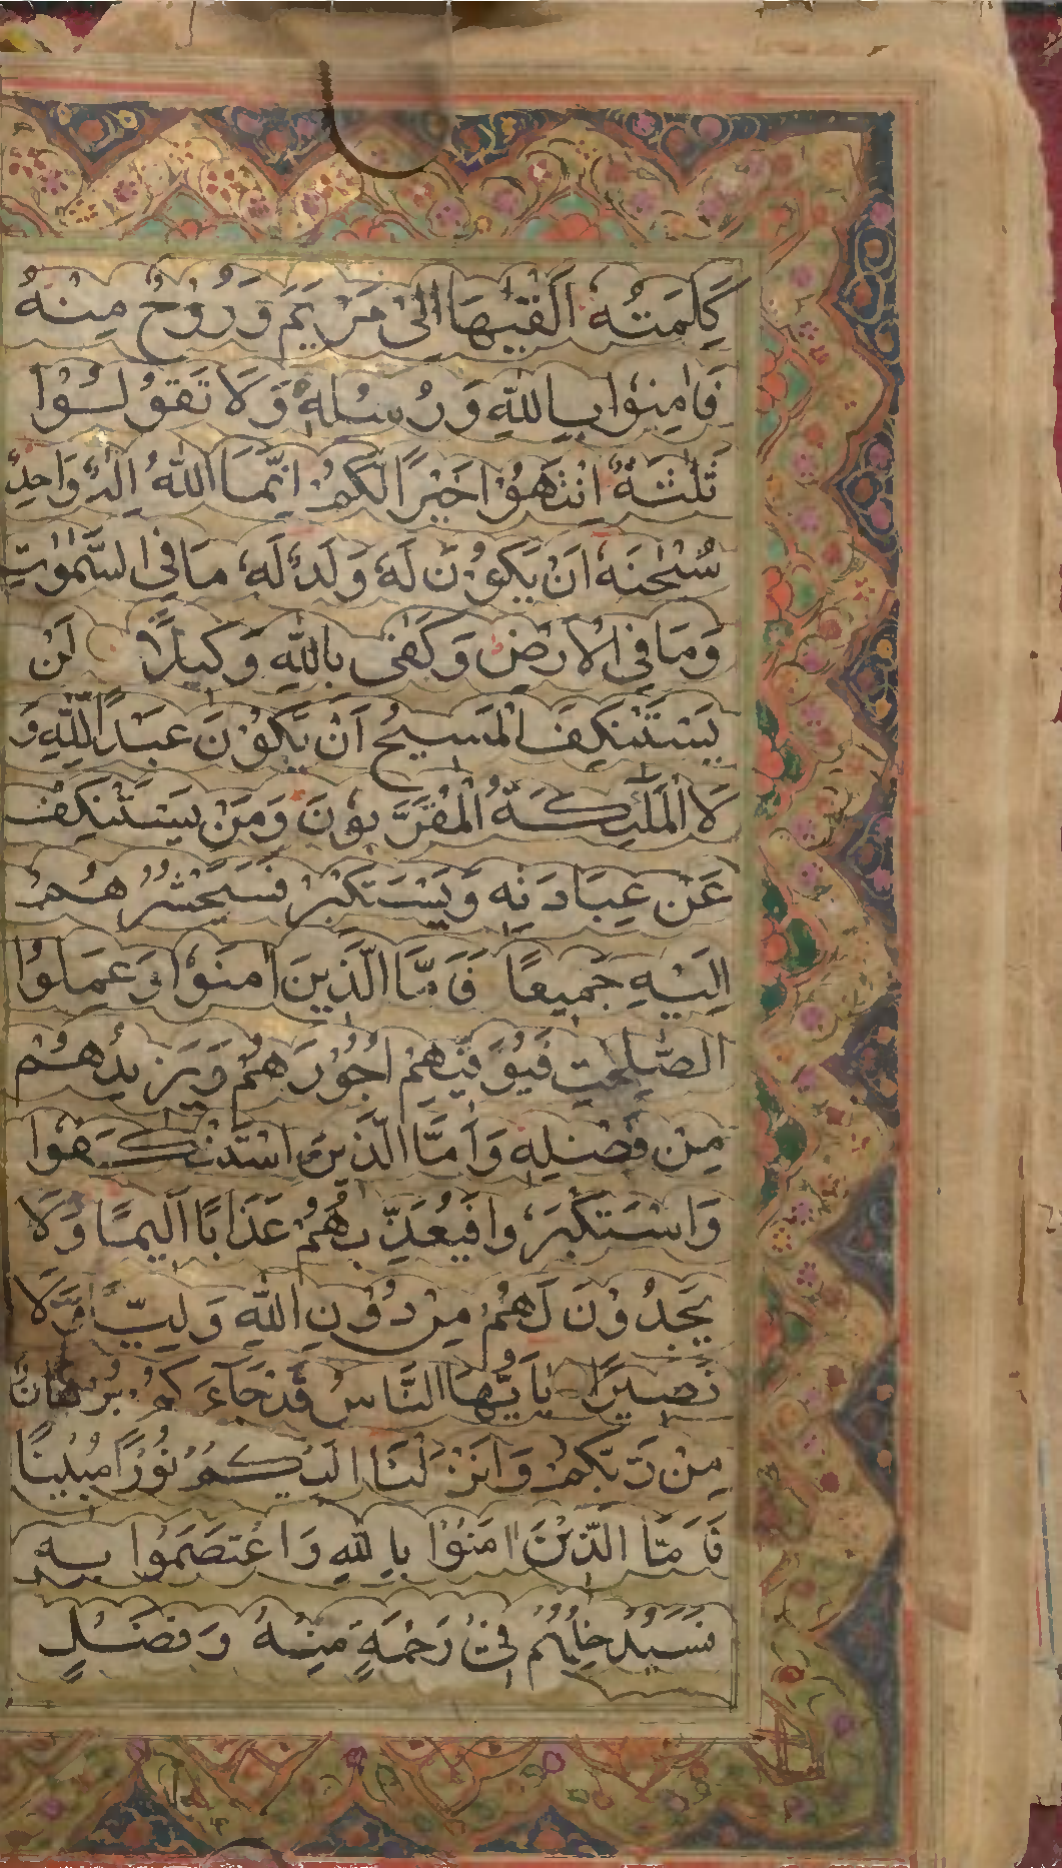 كَلِمَتُهٗ اَلْقٰىهَا اِلٰى مَرْيَمَ وَرُوْحٌ مِنْهُ
فَاٰمِنُوْا بِاللّٰهِ وَرُسُلِهٖ وَلَا تَقُوْلُوْا
ثَلٰثَةٌ اِنْتَهُوْا خَيْرًا لَّكُمْ اِنَّمَا اللّٰهُ اِلٰهٌ وَاحِدٌ
سُبْحٰنَهٗ اَنْ يَّكُوْنَ لَهٗ وَلَدٌ لَهٗ مَا فِى السَّمٰوٰتِ
وَمَا فِى الْاَرْضِ وَكَفٰى بِاللّٰهِ وَكِيْلًا لَنْ
يَسْتَنْكِفَ الْمَسِيْحُ اَنْ يَّكُوْنَ عَبْدًا لِلّٰهِ وَ
لَا الْمَلٰٓئِكَةُ الْمُقَرَّبُوْنَ وَمَنْ يَسْتَنْكِفْ
عَنْ عِبَادَتِهٖ وَيَسْتَكْبِرْ فَسَيَحْشُرُهُمْ
اِلَيْهِ جَمِيعًا فَاَمَّا الَّذِينَ اٰمَنُوْا وَعَمِلُوا
الصّٰلِحٰتِ فَيُوَفِّيْهِمْ اُجُوْرَهُمْ وَيَزِيْدُهُمْ
مِنْ فَضْلِهٖ وَاَمَّا الَّذِيْنَ اسْتَنْكَفُوْا
وَاسْتَكْبَرُوا فَيُعَذِّبُهُمْ عَذَابًا اَلِيمًا وَلَا
يَجِدُوْنَ لَهُمْ مِنْ دُوْنِ اللّٰهِ وَلِيًّا وَّلَا
نَصِيْرًا يٰاَيُّهَا النَّاسُ قَدْ جَآءَكُمْ بُرْهَانٌ
مِنْ رَّبِّكُمْ وَاَنْزَلْنَا اِلَيْكُمْ نُوْرًا مُّبِيْنًا
فَاَمَّا الَّذِيْنَ اٰمَنُوْا بِاللّٰهِ وَاعْتَصَمُوا بِهٖ
فَسَيُدْخِلُهُمْ فِىْ رَحْمَةٍ مِنْهُ وَفَضْلٍ